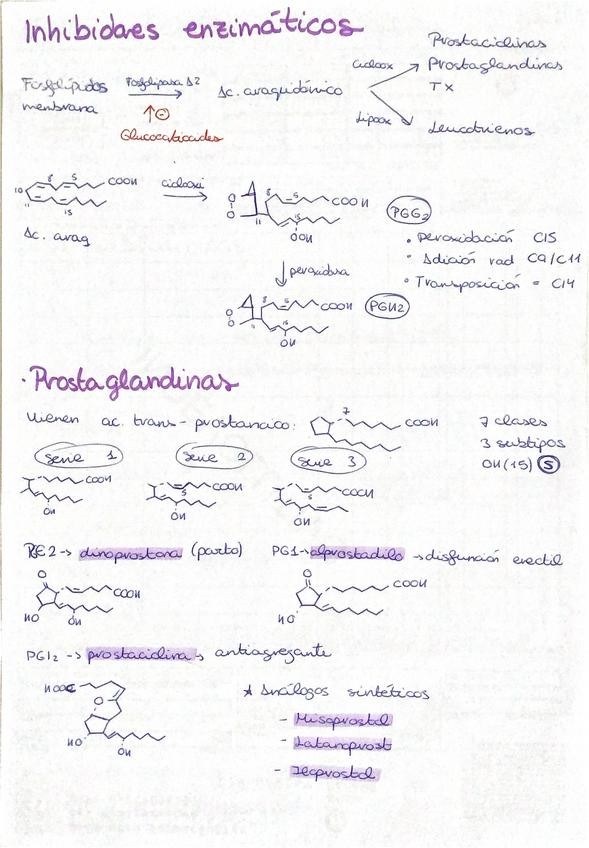 Inhibidores enzimáticos
Prostaciclinas
Cicloox
Prostaglandinas
Fosfolípidos
Fosfolipasa A2
Ac. araquidónico
Tx
membrana
↑⊖
Lipoox
Leucotrienos
Glucocorticoides
10 8 5 COOH
cicloxi
11 15
Ac. arag
O O 8 5 COOH
11 15
OOH
PGG2
• Peroxidación C15
• Adición rad C9/C11
• Transposición = C14
peroxidasa
O O 8 5 COOH
11 15
OH
PGH2
· Prostaglandinas
Vienen ac. trans-prostanoico:
7 COOH
7 clases
3 subtipos
OH(15) S
Serie 1
Serie 2
Serie 3
COOH
OH
COOH
5
OH
COOH
5
OH
PGE2 -> dinoprostona (parto)
PG1 -> alprostadilo -> disfunción erectil
O COOH
HO OH
O COOH
HO
PGI2 -> prostaciclina -> antiagregante
HOOC
O
HO OH
* Análogos sintéticos
- Misoprostol
- Latanoprost